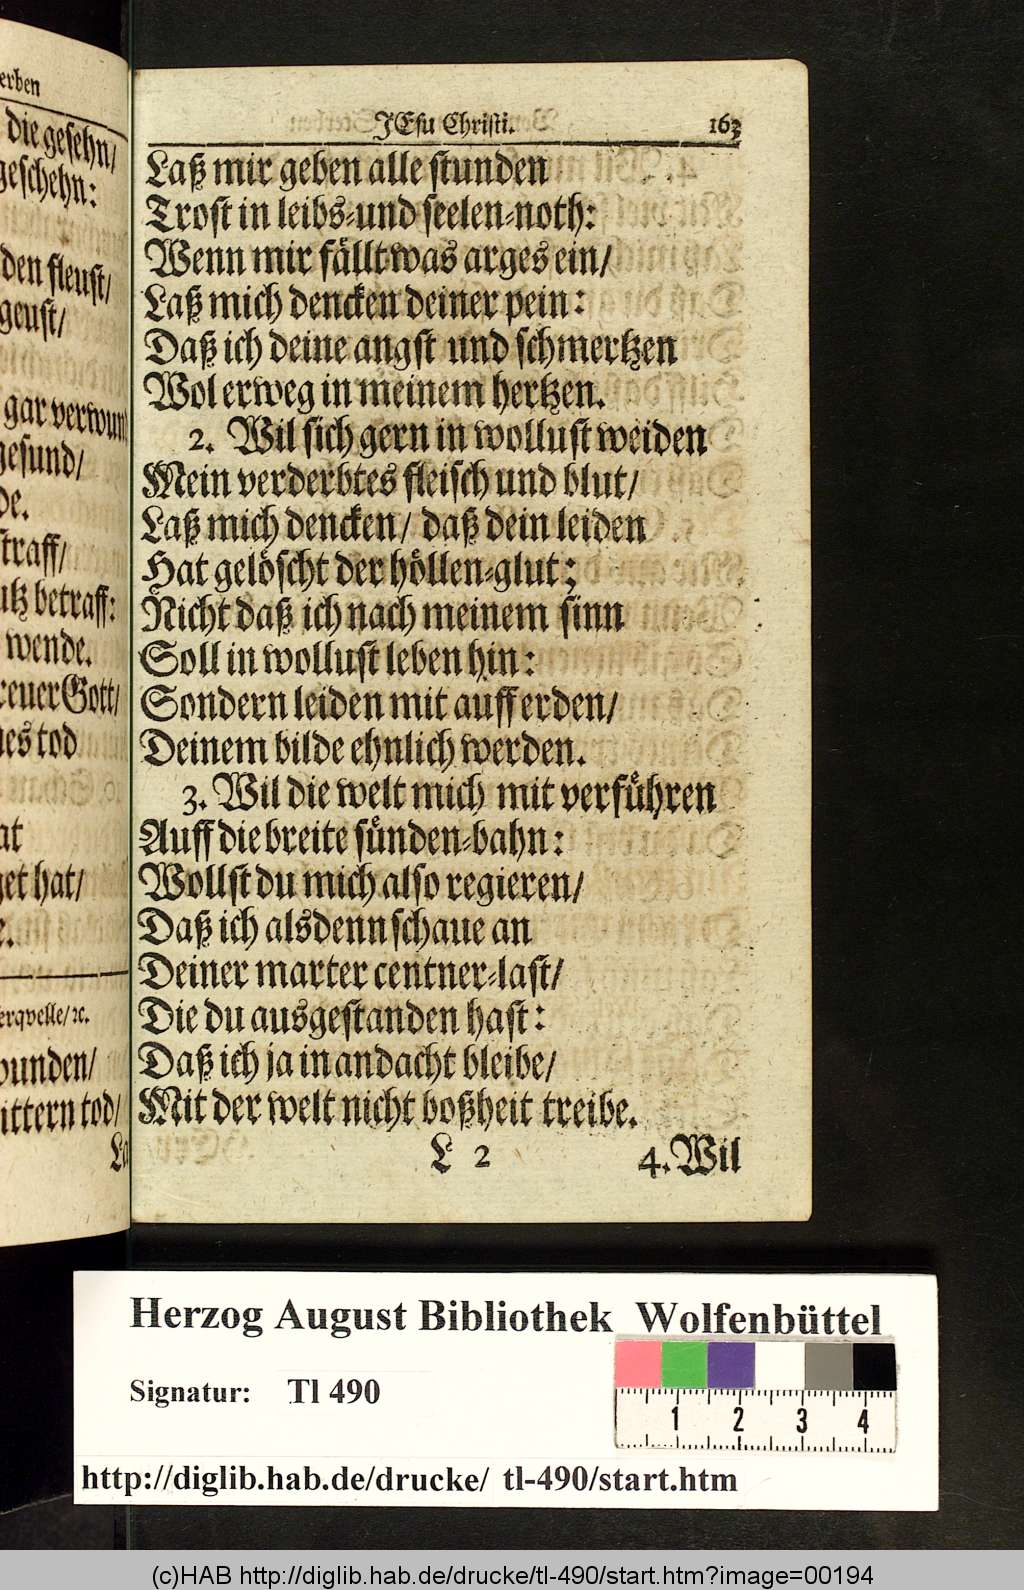 erben
die gesehn/
geschehn:
den fleust/
geust/
gar verwun
gesund/
de.
straff/
betraff:
wende.
reuer Gott/
es tod
at
get hat/
e.
erqvelle/ ꝛc.
bunden/
ittern tod/
La
JEsu Christi. 163
Laß mir geben alle stunden
Trost in leibs-und seelen-noth:
Wenn mir fällt was arges ein/
Laß mich dencken deiner pein:
Daß ich deine angst und schmertzen
Wol erweg in meinem hertzen.
2. Wil sich gern in wollust weiden
Mein verderbtes fleisch und blut/
Laß mich dencken/ daß dein leiden
Hat gelöscht der höllen-glut;
Nicht daß ich nach meinem sinn
Soll in wollust leben hin:
Sondern leiden mit auff erden/
Deinem bilde ehnlich werden.
3. Wil die welt mich mit verführen
Auff die breite sünden-bahn:
Wollst du mich also regieren/
Daß ich alsdenn schaue an
Deiner marter centner-last/
Die du ausgestanden hast:
Daß ich ja in andacht bleibe/
Mit der welt nicht boßheit treibe.
L 2 4. Wil
Herzog August Bibliothek Wolfenbüttel
Signatur: Tl 490
1 2 3 4
http://diglib.hab.de/drucke/ tl-490/start.htm
(c)HAB http://diglib.hab.de/drucke/tl-490/start.htm?image=00194